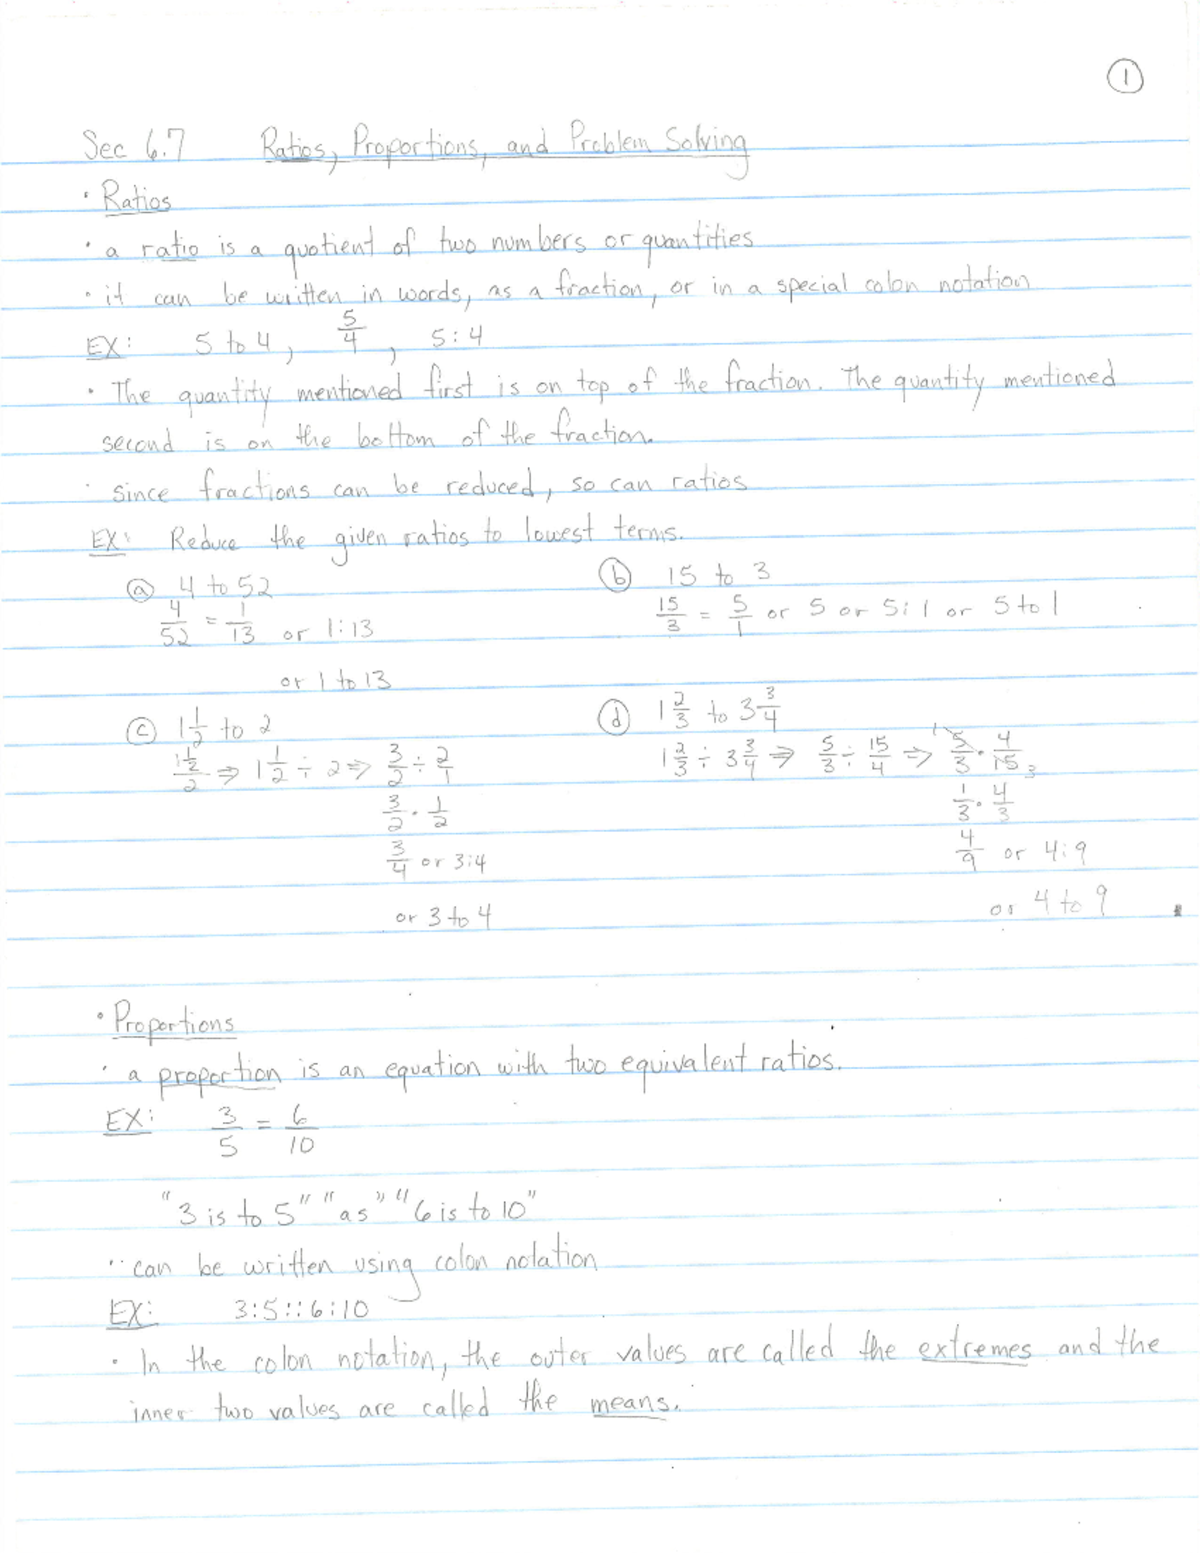 1
Sec 6.7 Ratios, Proportions, and Problem Solving
• Ratios
• a ratio is a quotient of two numbers or quantities
• it can be written in words, as a fraction, or in a special colon notation
EX: 5 to 4, 5/4, 5:4
• The quantity mentioned first is on top of the fraction. The quantity mentioned
second is on the bottom of the fraction.
• since fractions can be reduced, so can ratios
EX: Reduce the given ratios to lowest terms.
ⓐ 4 to 52
4/52 = 1/13 or 1:13
or 1 to 13
ⓑ 15 to 3
15/3 = 5/1 or 5 or 5:1 or 5 to 1
ⓒ 1 1/2 to 2
(1 1/2)/2 ⇒ 1 1/2 ÷ 2 ⇒ 3/2 ÷ 2/1
3/2 · 1/2
3/4 or 3:4
or 3 to 4
ⓓ 1 2/3 to 3 3/4
1 2/3 ÷ 3 3/4 ⇒ 5/3 ÷ 15/4 ⇒ 1 5/3 · 4/15 3
1/3 · 4/3
4/9 or 4:9
or 4 to 9
• Proportions
• a proportion is an equation with two equivalent ratios.
EX: 3/5 = 6/10
"3 is to 5" "as" "6 is to 10"
• can be written using colon notation
EX: 3:5::6:10
• In the colon notation, the outer values are called the extremes and the
inner two values are called the means.